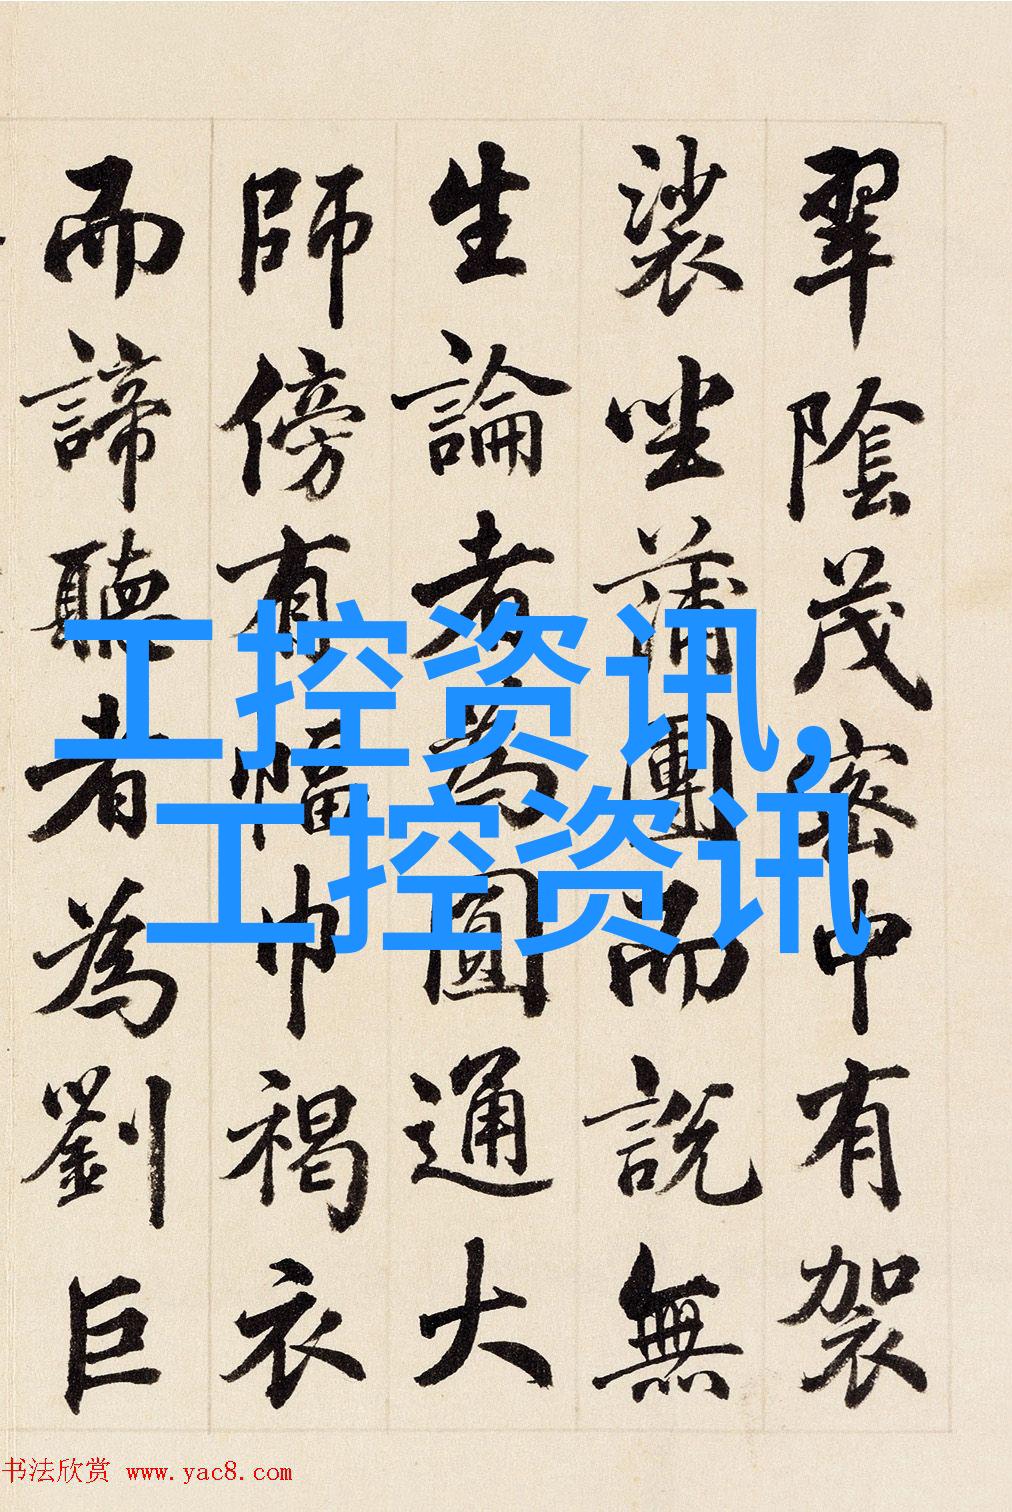 翠陰茂密中有袈
裟坐蒲團而説無
生論者為圓通大
師傍有幅巾褐衣
而諦聽者為劉巨
工控资讯,
工控资讯
书法欣赏 www.yac8.com